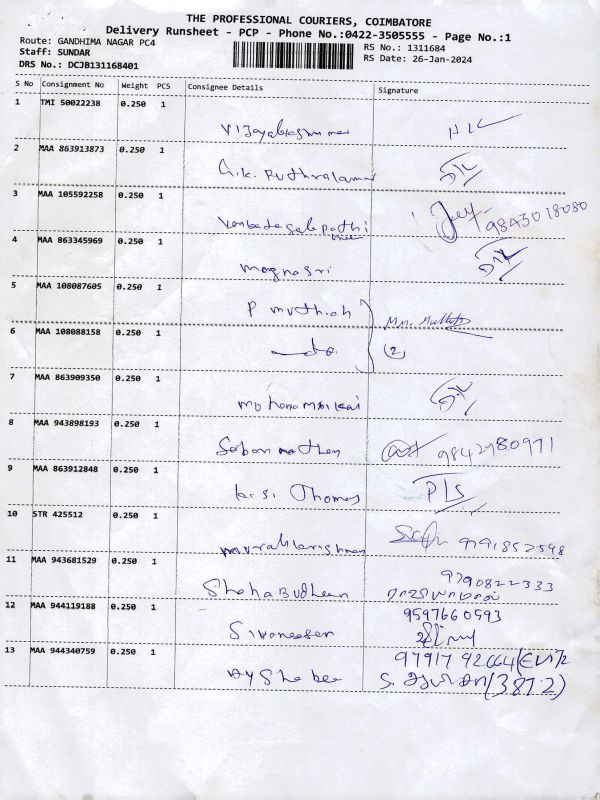 THE PROFESSIONAL COURIERS, COIMBATORE
Delivery Runsheet - PCP - Phone No.:0422-3505555 - Page No.:1
Route: GANDHIMA NAGAR PC4
RS No.: 1311684
Staff: SUNDAR
RS Date: 26-Jan-2024
DRS No.: DCJB131168401
S No Consignment No Weight PCS Consignee Details Signature
1 TMI 50022238 0.250 1
2 MAA 863913873 0.250 1
G.K. Puthralamar
3 MAA 105592258 0.250 1
Venkadasalapathi 9843018080
4 MAA 863345969 0.250 1
magnasri
5 MAA 108087605 0.250 1
P muthiah
6 MAA 108088158 0.250 1
do. 2
7 MAA 863909350 0.250 1
8 MAA 943898193 0.250 1
9842980971
9 MAA 863912848 0.250 1
K.S. Thomas P/S
10 STR 425512 0.250 1
9791852548
11 MAA 943681529 0.250 1
9790822333
Shahabudheen
12 MAA 944119188 0.250 1
9597660593
Sivaneasan
13 MAA 944340759 0.250 1
97917 92664
Aysha bee (3872)